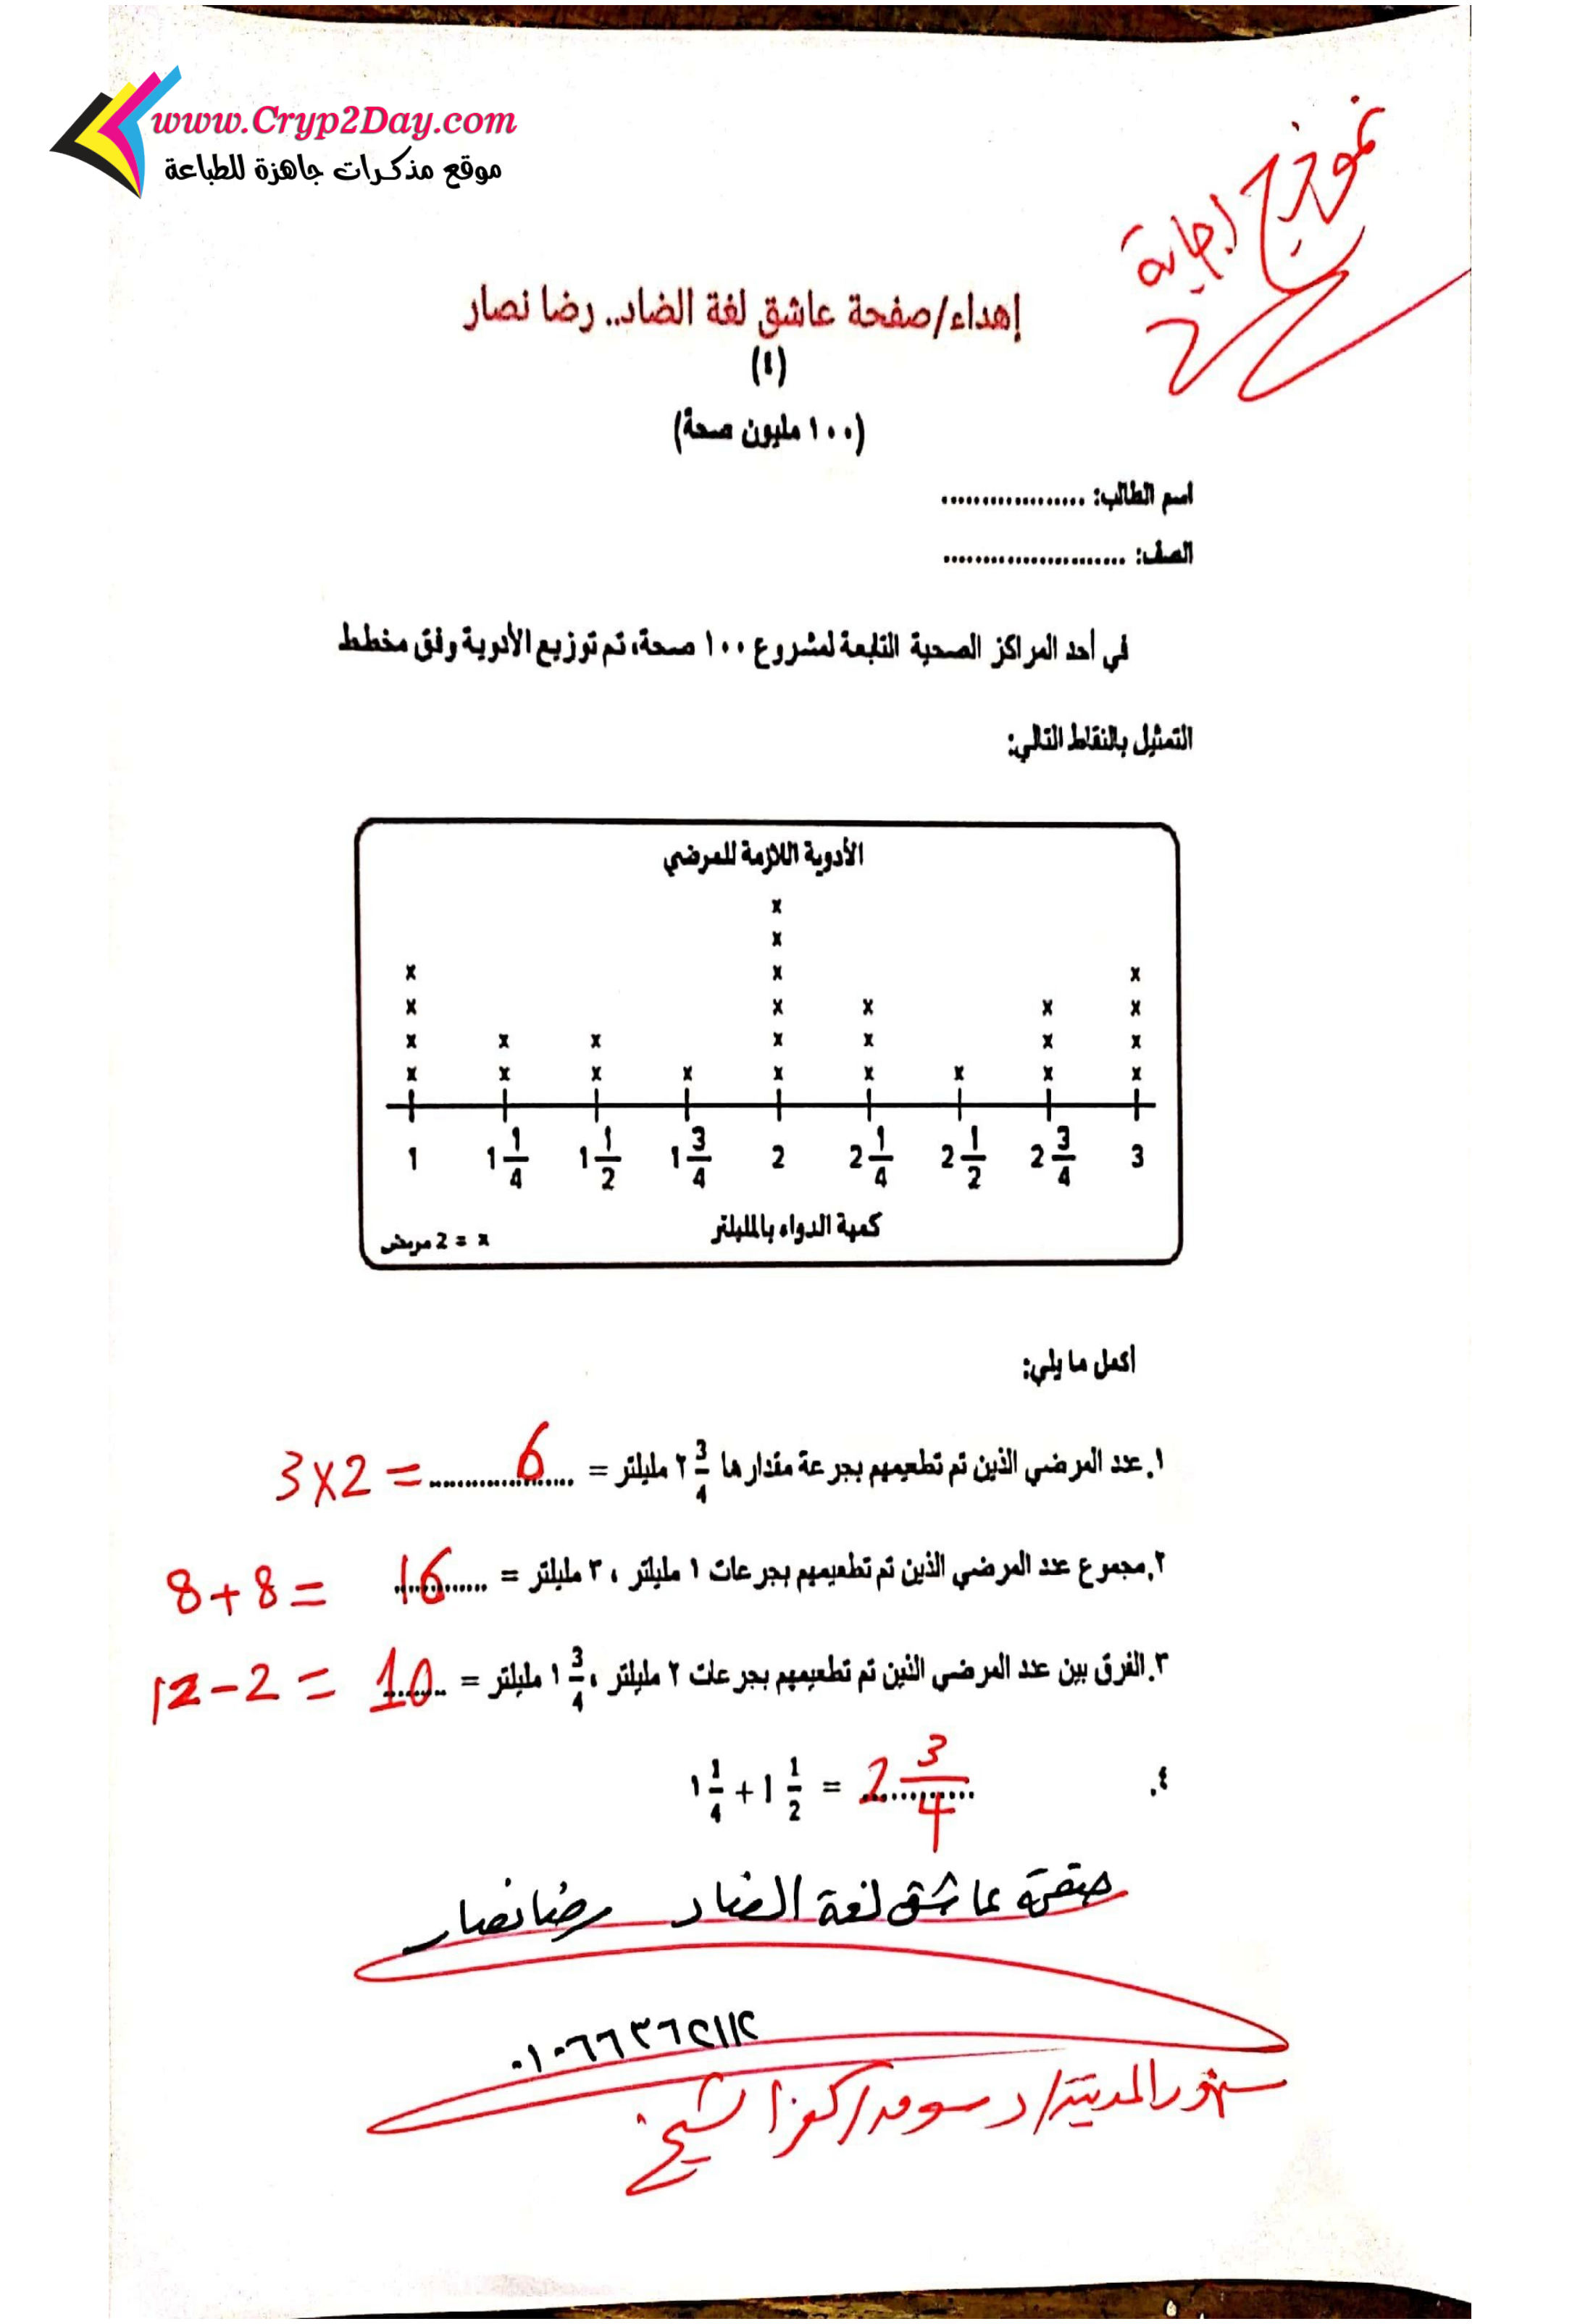 www.Cryp2Day.com
موقع مذكرات جاهزة للطباعة
نموذج إجابة
إهداء/صفحة عاشق لغة الضاد.. رضا نصار
(٤)
(١٠٠ مليون صحة)
اسم الطالب: ..................
الصف: .......................
في أحد المراكز الصحية التابعة لمشروع ١٠٠ صحة، تم توزيع الأدوية وفق مخطط
التمثيل بالنقاط التالي:
الأدوية اللازمة للمرضي
1 1 1/4 1 1/2 1 3/4 2 2 1/4 2 1/2 2 3/4 3
كمية الدواء بالمليلتر
x = 2 مريض
أكمل ما يلي:
١. عدد المرضي الذين تم تطعيمهم بجرعة مقدارها ٢ 3/4 مليلتر = ......6...... = 3x2
٢. مجموع عدد المرضي الذين تم تطعيمهم بجرعات ١ مليلتر ، ٣ مليلتر = ....16.... 8+8=
٣. الفرق بين عدد المرضي الذين تم تطعيمهم بجرعات ٢ مليلتر ، ١ 3/4 مليلتر = ....10.... 12-2=
٤. 1 1/4 + 1 1/2 = 2 3/4
صفحة عاشق لغة الضاد رضا نصار
٠١٠٦٦٣٦٢١١٢
سنهور المدينة/دسوق/كفر الشيخ